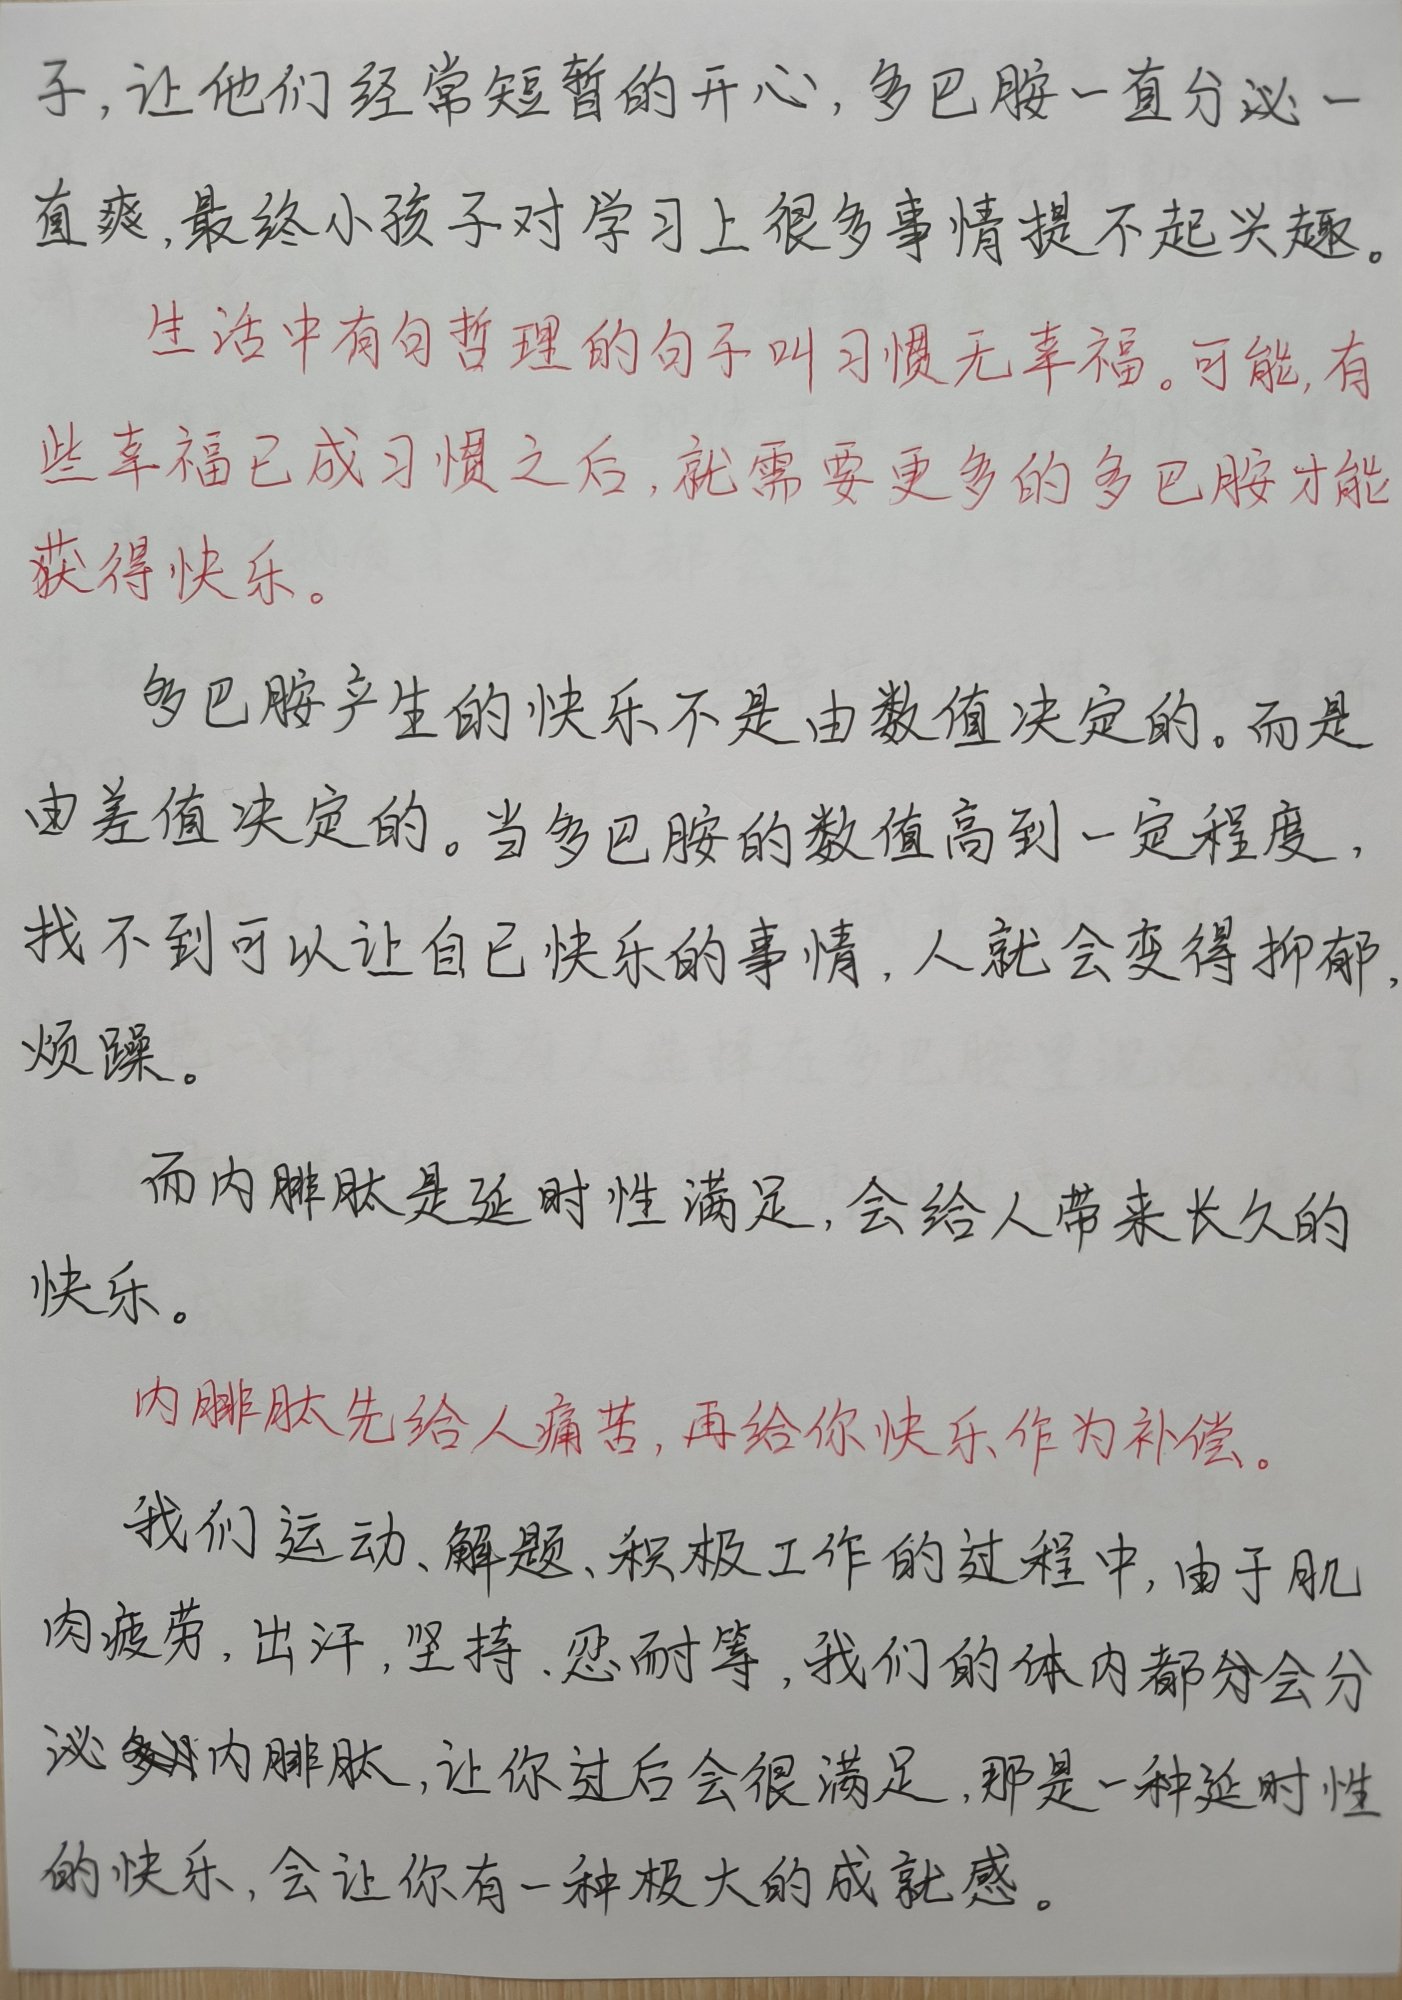 子,让他们经常短暂的开心,多巴胺一直分泌一
直爽,最终小孩子对学习上很多事情提不起兴趣。
生活中有句哲理的句子叫习惯无幸福。可能,有
些幸福已成习惯之后,就需要更多的多巴胺才能
获得快乐。
多巴胺产生的快乐不是由数值决定的。而是
由差值决定的。当多巴胺的数值高到一定程度,
找不到可以让自己快乐的事情,人就会变得抑郁,
烦躁。
而内腓肽是延时性满足,会给人带来长久的
快乐。
内腓肽先给人痛苦,再给你快乐作为补偿。
我们运动、解题、积极工作的过程中,由于肌
肉疲劳,出汗,坚持、忍耐等,我们的体内都分会分
泌内腓肽,让你过后会很满足,那是一种延时性
的快乐,会让你有一种极大的成就感。